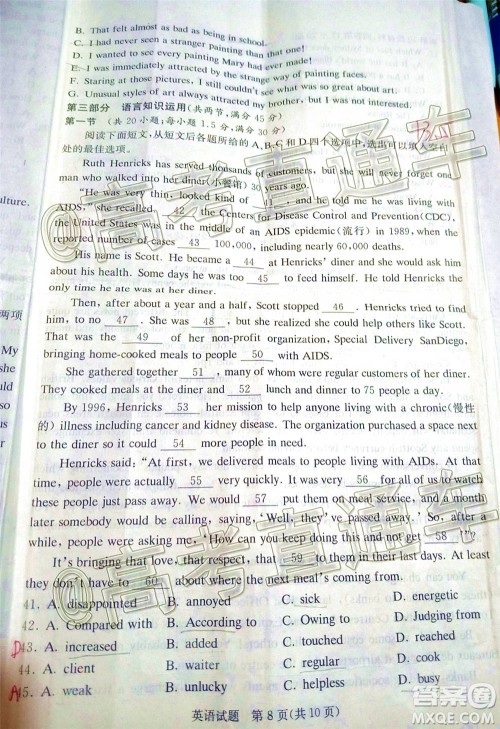 B. That felt almost as bad as being in school.
C. I had never seen a stranger painting than that one!
D. I wanted to see every painting Mary had ever made!
E. I was immediately attracted by the strange way of painting faces.
F. Staring at those pictures, I still couldn't see what was so great about art.
G. Unusual styles of art always attracted my brother, but I was not interested.
第三部分 语言知识运用(共两节,满分 45 分)
第一节 (共 20 小题;每小题 1.5 分,满分 30 分)
阅读下面短文,从短文后各题所给的 A、B、C 和 D 四个选项中,选出可以填入空白
处的最佳选项。
Ruth Henricks has served thousands of customers, but she will never forget the
man who walked into her diner(小餐馆) 30 years ago.
"He was very thin, looked kind of 41 , and he told me he was living with
AIDS," she recalled. 42 the Centers for Disease Control and Prevention(CDC),
the United States was in the middle of an AIDS epidemic(流行) in 1989, when the
reported number of cases 43 100,000, including nearly 60,000 deaths.
His name is Scott. He became a 44 at Henricks' diner and she would ask him
about his health. Some days he was too 45 to feed himself. He told Henricks the
only time he ate was at her diner.
Then, after about a year and a half, Scott stopped 46 . Henricks tried to find
him, to no 47 . She was 48 , but she realized she could help others like Scott.
That was the 49 of her non-profit organization, Special Delivery SanDiego,
bringing home-cooked meals to people 50 with AIDS.
She gathered together 51 , many of whom were regular customers of her diner.
They cooked meals at the diner and 52 lunch and dinner to 75 people a day.
By 1996, Henricks 53 her mission to help anyone living with a chronic(慢性
的) illness including cancer and kidney disease. The organization purchased a space next
to the diner so it could 54 more people in need.
Henricks said: "At first, we delivered meals to people living with AIDs. At that
time they were actually 55 very quickly. It was very 56 for all of us to watch
these people just pass away. We would 57 put them on meal service, and a month
later somebody would be calling, saying, 'Well, they've passed away.' So, after a
while, people began asking me, 'How can you keep doing this and not get 58 '?
It's bringing that love, that respect, that 59 to them in their last days. At least
they don't have to 60 about where the next meal's coming from.
41. A. disappointed B. annoyed C. sick D. energetic
42. A. Compared with B. According to C. Owing to D. Judging from
D43. A. increased B. added C. touched D. reached
44. A. client B. waiter C. regular D. cook
A45. A. weak B. unlucky C. helpless D. busy
英语试题 第 8 页(共 10 页)
ulture.
两项
My
so
高考直通车
高考直通车
答案圈
MXQE.COM